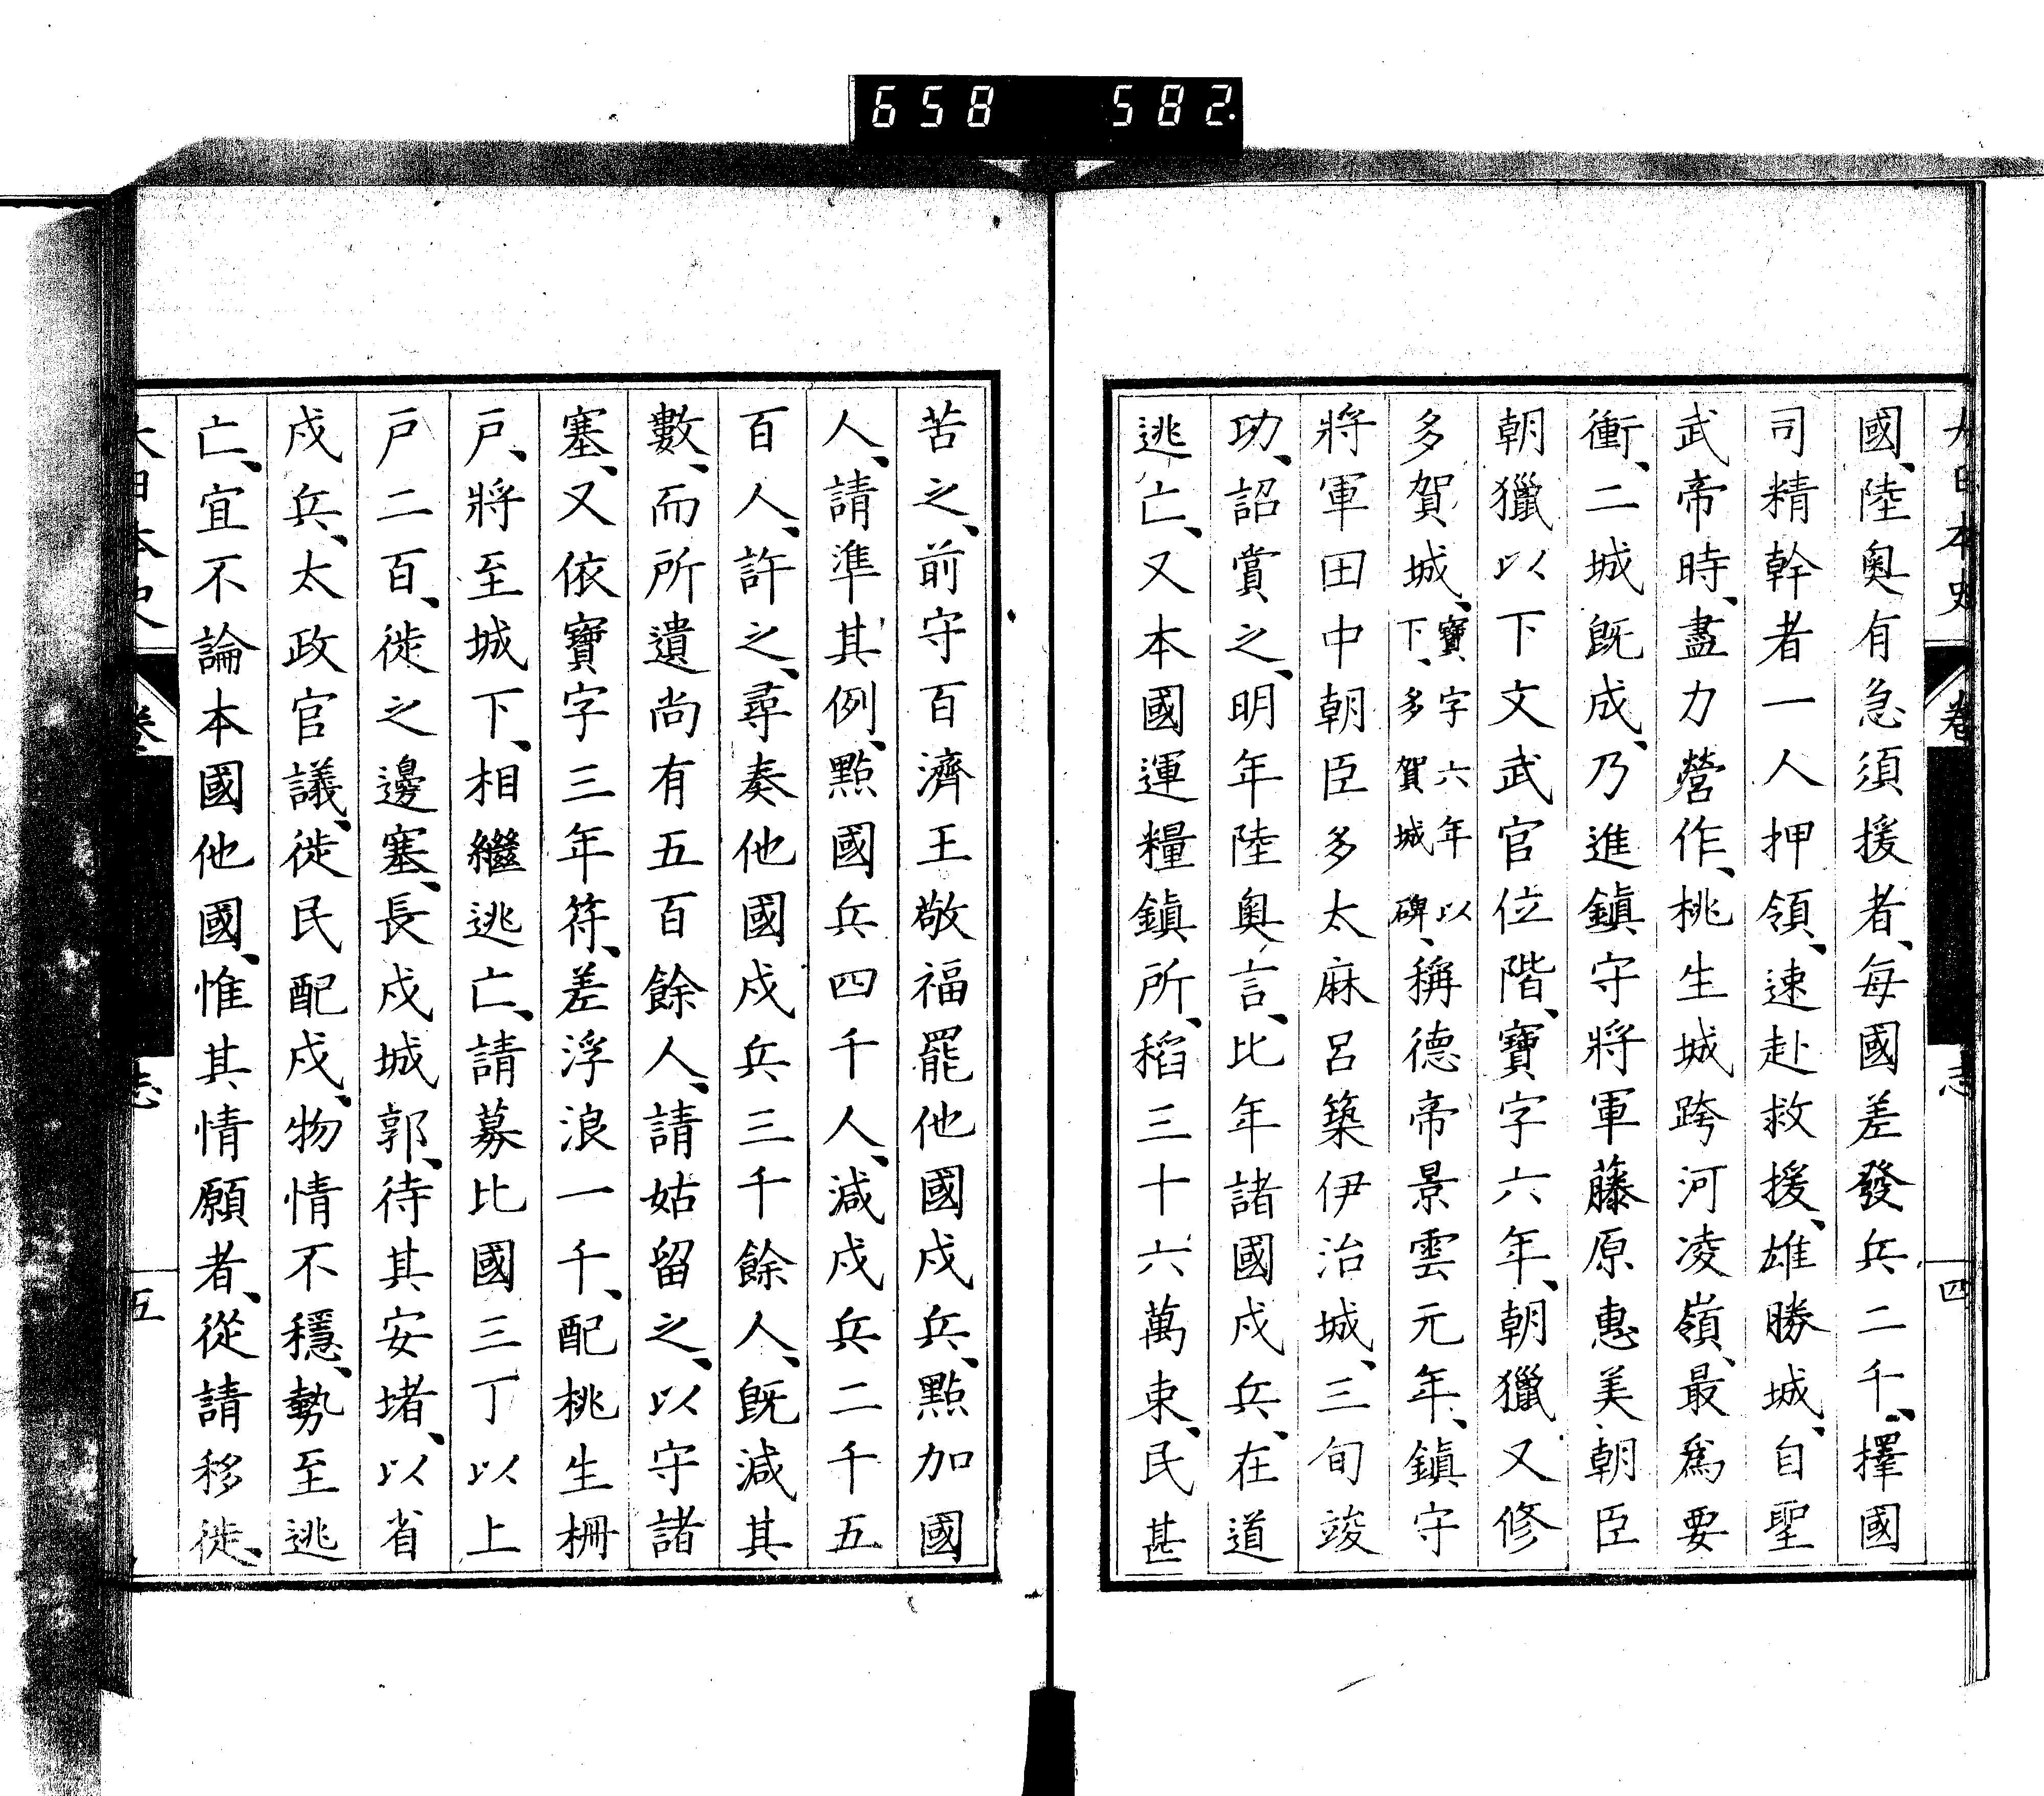 658 582
大日本史 卷 志 四
國、陸奧有急須援者、每國差發兵二千、擇國
司精幹者一人押領、速赴救援、雄勝城、自聖
武帝時、盡力營作、桃生城跨河凌嶺、最爲要
衝、二城既成、乃進鎭守將軍藤原惠美朝臣
朝獵以下文武官位階、寶字六年、朝獵又修
多賀城、寶字六年以下、多賀城碑、稱德帝景雲元年、鎭守
將軍田中朝臣多太麻呂築伊治城、三旬竣
功、詔賞之、明年陸奧言、比年諸國戍兵、在道
逃亡、又本國運糧鎭所、稻三十六萬束、民甚
苦之、前守百濟王敬福罷他國戍兵、點加國
人、請準其例、點國兵四千人、減戍兵二千五
百人、許之、尋奏他國戍兵三千餘人、既減其
數、而所遺尚有五百餘人、請姑留之、以守諸
塞、又依寶字三年符、差浮浪一千、配桃生柵
戸、將至城下、相繼逃亡、請募比國三丁以上
戸二百、徙之邊塞、長戍城郭、待其安堵、以省
戍兵、太政官議、徙民配戍、物情不穩、勢至逃
亡、宜不論本國他國、惟其情願者、從請移徙、
大日本史 卷 志 五